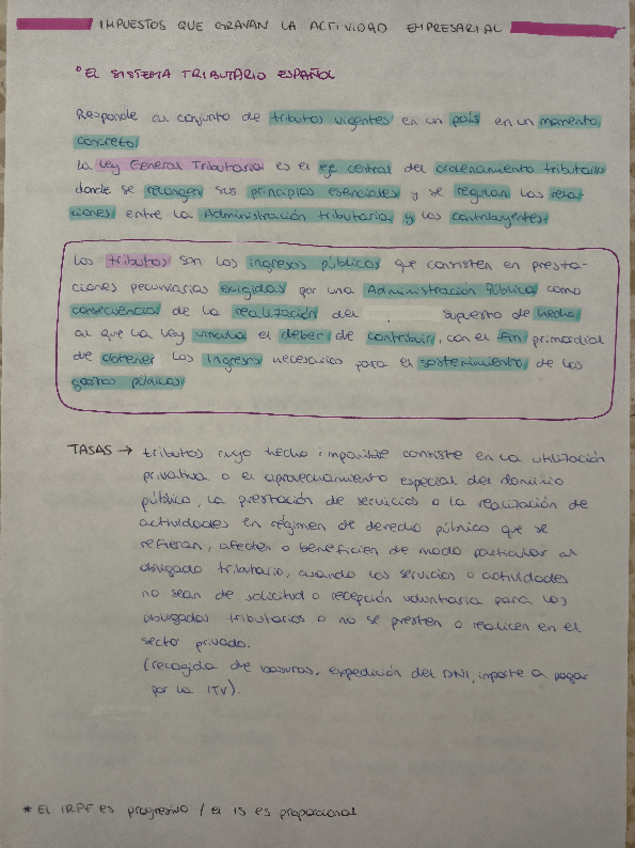 IMPUESTOS QUE GRAVAN LA ACTIVIDAD EMPRESARIAL
° EL SISTEMA TRIBUTARIO ESPAÑOL
Responde al conjunto de tributos vigentes en un país en un momento
concreto.
La Ley General Tributaria es el eje central del ordenamiento tributario
donde se recogen sus principios esenciales y se regulan las rela-
ciones entre la Administración tributaria y los contribuyentes.
Los tributos son los ingresos públicos que consisten en presta-
ciones pecuniarias exigidas por una Administración Pública como
consecuencia de la realización del supuesto de hecho
al que la ley vincula el deber de contribuir, con el fin primordial
de obtener los ingresos necesarios para el sostenimiento de los
gastos públicos.
TASAS → tributos cuyo hecho imponible consiste en la utilización
privativa o el aprovechamiento especial del dominio
público, la prestación de servicios o la realización de
actividades en régimen de derecho público que se
refieran, afecten o beneficien de modo particular al
obligado tributario, cuando los servicios o actividades
no sean de solicitud o recepción voluntaria para los
obligados tributarios o no se presten o realicen en el
sector privado.
(recogida de basuras, expedición del DNI, importe a pagar
por la ITV).
* El IRPF es progresivo / el IS es proporcional